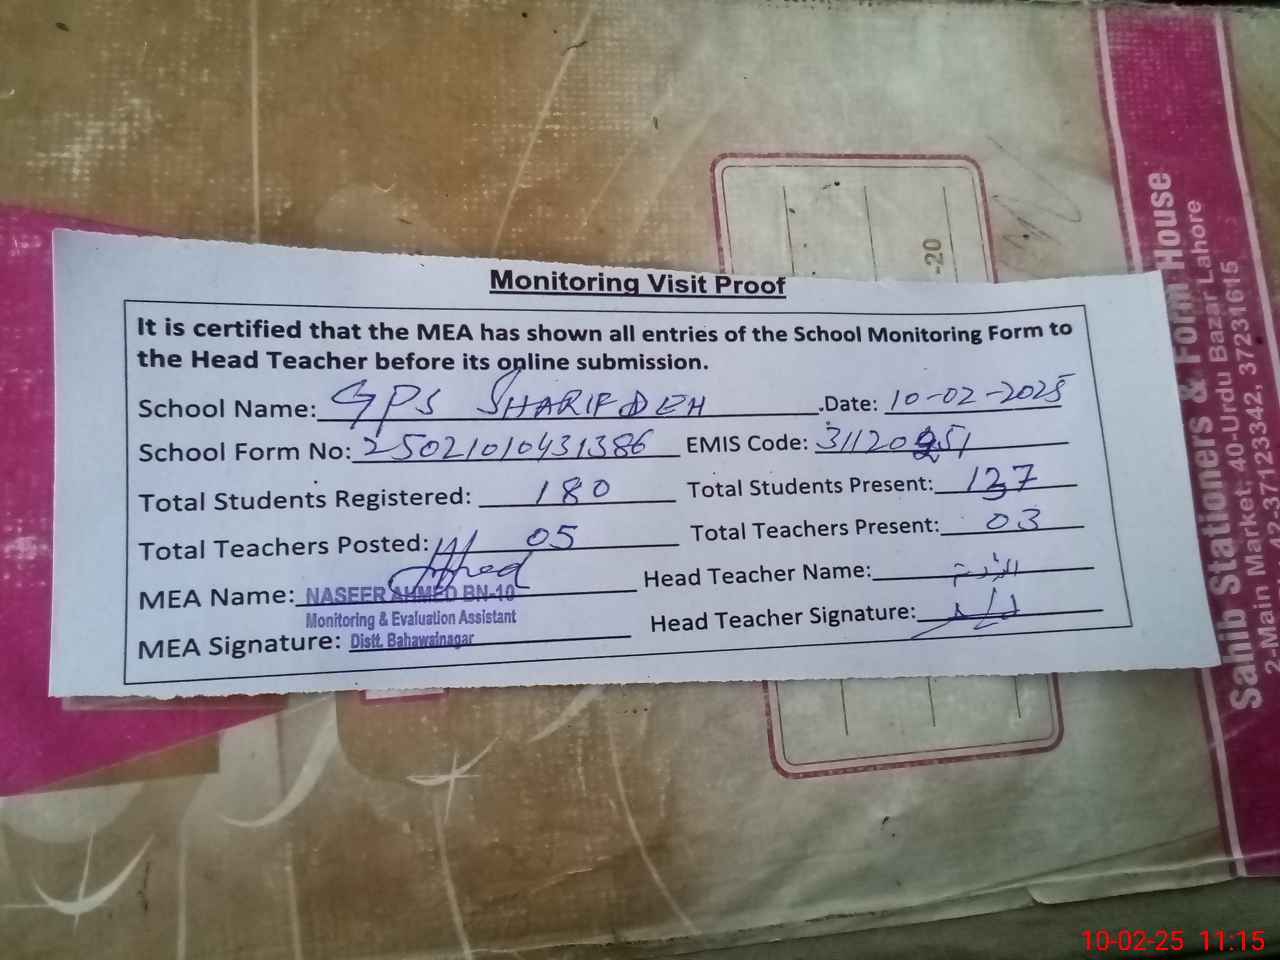 Monitoring Visit Proof
It is certified that the MEA has shown all entries of the School Monitoring Form to
the Head Teacher before its online submission.
School Name: GPS SHARIF DEH .Date: 10-02-2025
School Form No: 25021010431386 EMIS Code: 31120251
Total Students Registered: 180 Total Students Present: 137
Total Teachers Posted: 05 Total Teachers Present: 03
MEA Name: NASEER AHMED BN-10 Head Teacher Name:
Monitoring & Evaluation Assistant
MEA Signature: Distt. Bahawalnagar Head Teacher Signature:
-20
Sahib Stationers & Form House
2-Main Market, 40-Urdu Bazar Lahore
42-37123342, 37231615
10-02-25 11:15